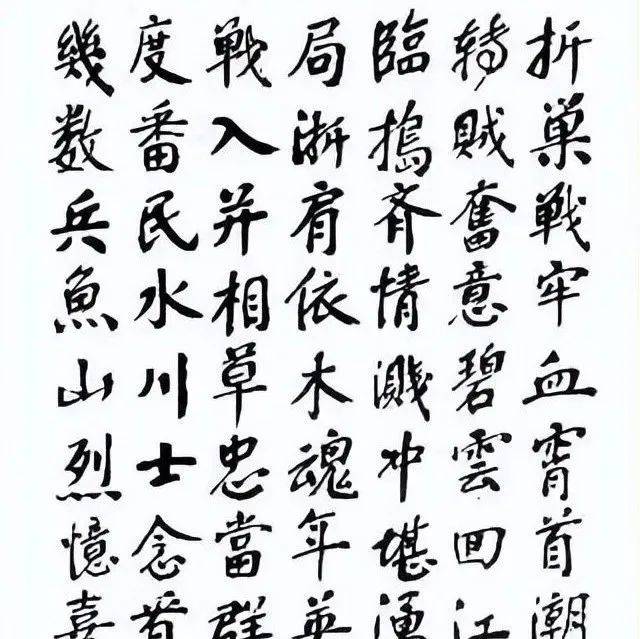 幾度戦局臨轉折
数番入浙搗賊巢
兵民并肩斉奮戦
魚水相依情意牢
山川草木濺碧血
烈士忠魂冲雲霄
憶念當年堪回首
喜看群英涌江潮